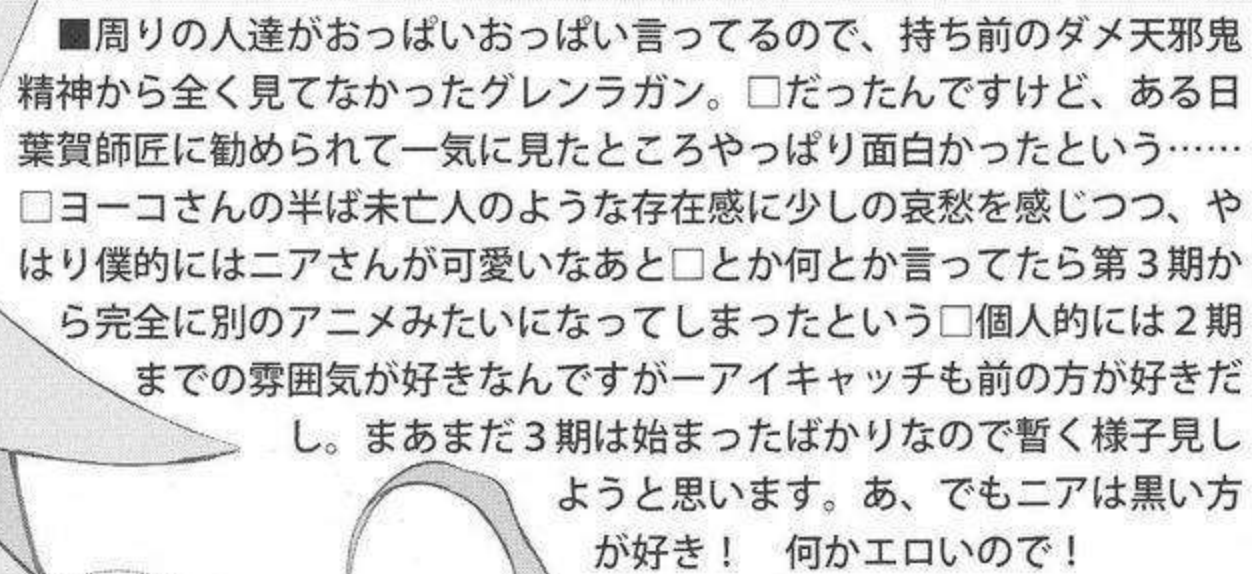 ■周りの人達がおっぱいおっぱい言ってるので、持ち前のダメ天邪鬼
精神から全く見てなかったグレンラガン。□だったんですけど、ある日
葉賀師匠に勧められて一気に見たところやっぱり面白かったという……
□ヨーコさんの半ば未亡人のような存在感に少しの哀愁を感じつつ、や
はり僕的にはニアさんが可愛いなあと□とか何とか言ってたら第３期か
ら完全に別のアニメみたいになってしまったという□個人的には２期
までの雰囲気が好きなんですがーアイキャッチも前の方が好きだ
し。まあまだ３期は始まったばかりなので暫く様子見し
ようと思います。あ、でもニアは黒い方
が好き！　何かエロいので！